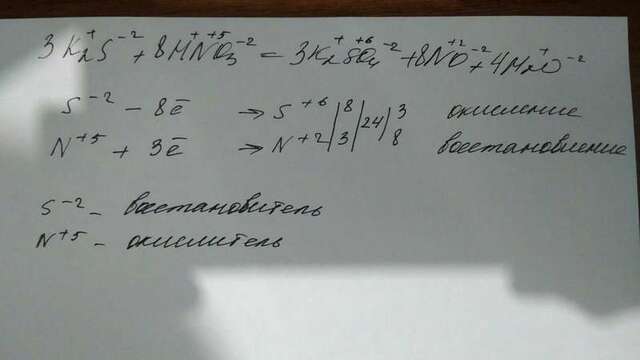 3K₂⁺S⁻² + 8H⁺N⁺⁵O₃⁻² = 3K₂⁺S⁺⁶O₄⁻² + 8N⁺²O⁻² + 4H₂⁺O⁻²
S⁻² − 8ē → S⁺⁶ | 8 | 24 | 3 окисление
N⁺⁵ + 3ē → N⁺² | 3 | 8 восстановление
S⁻² – восстановитель
N⁺⁵ – окислитель